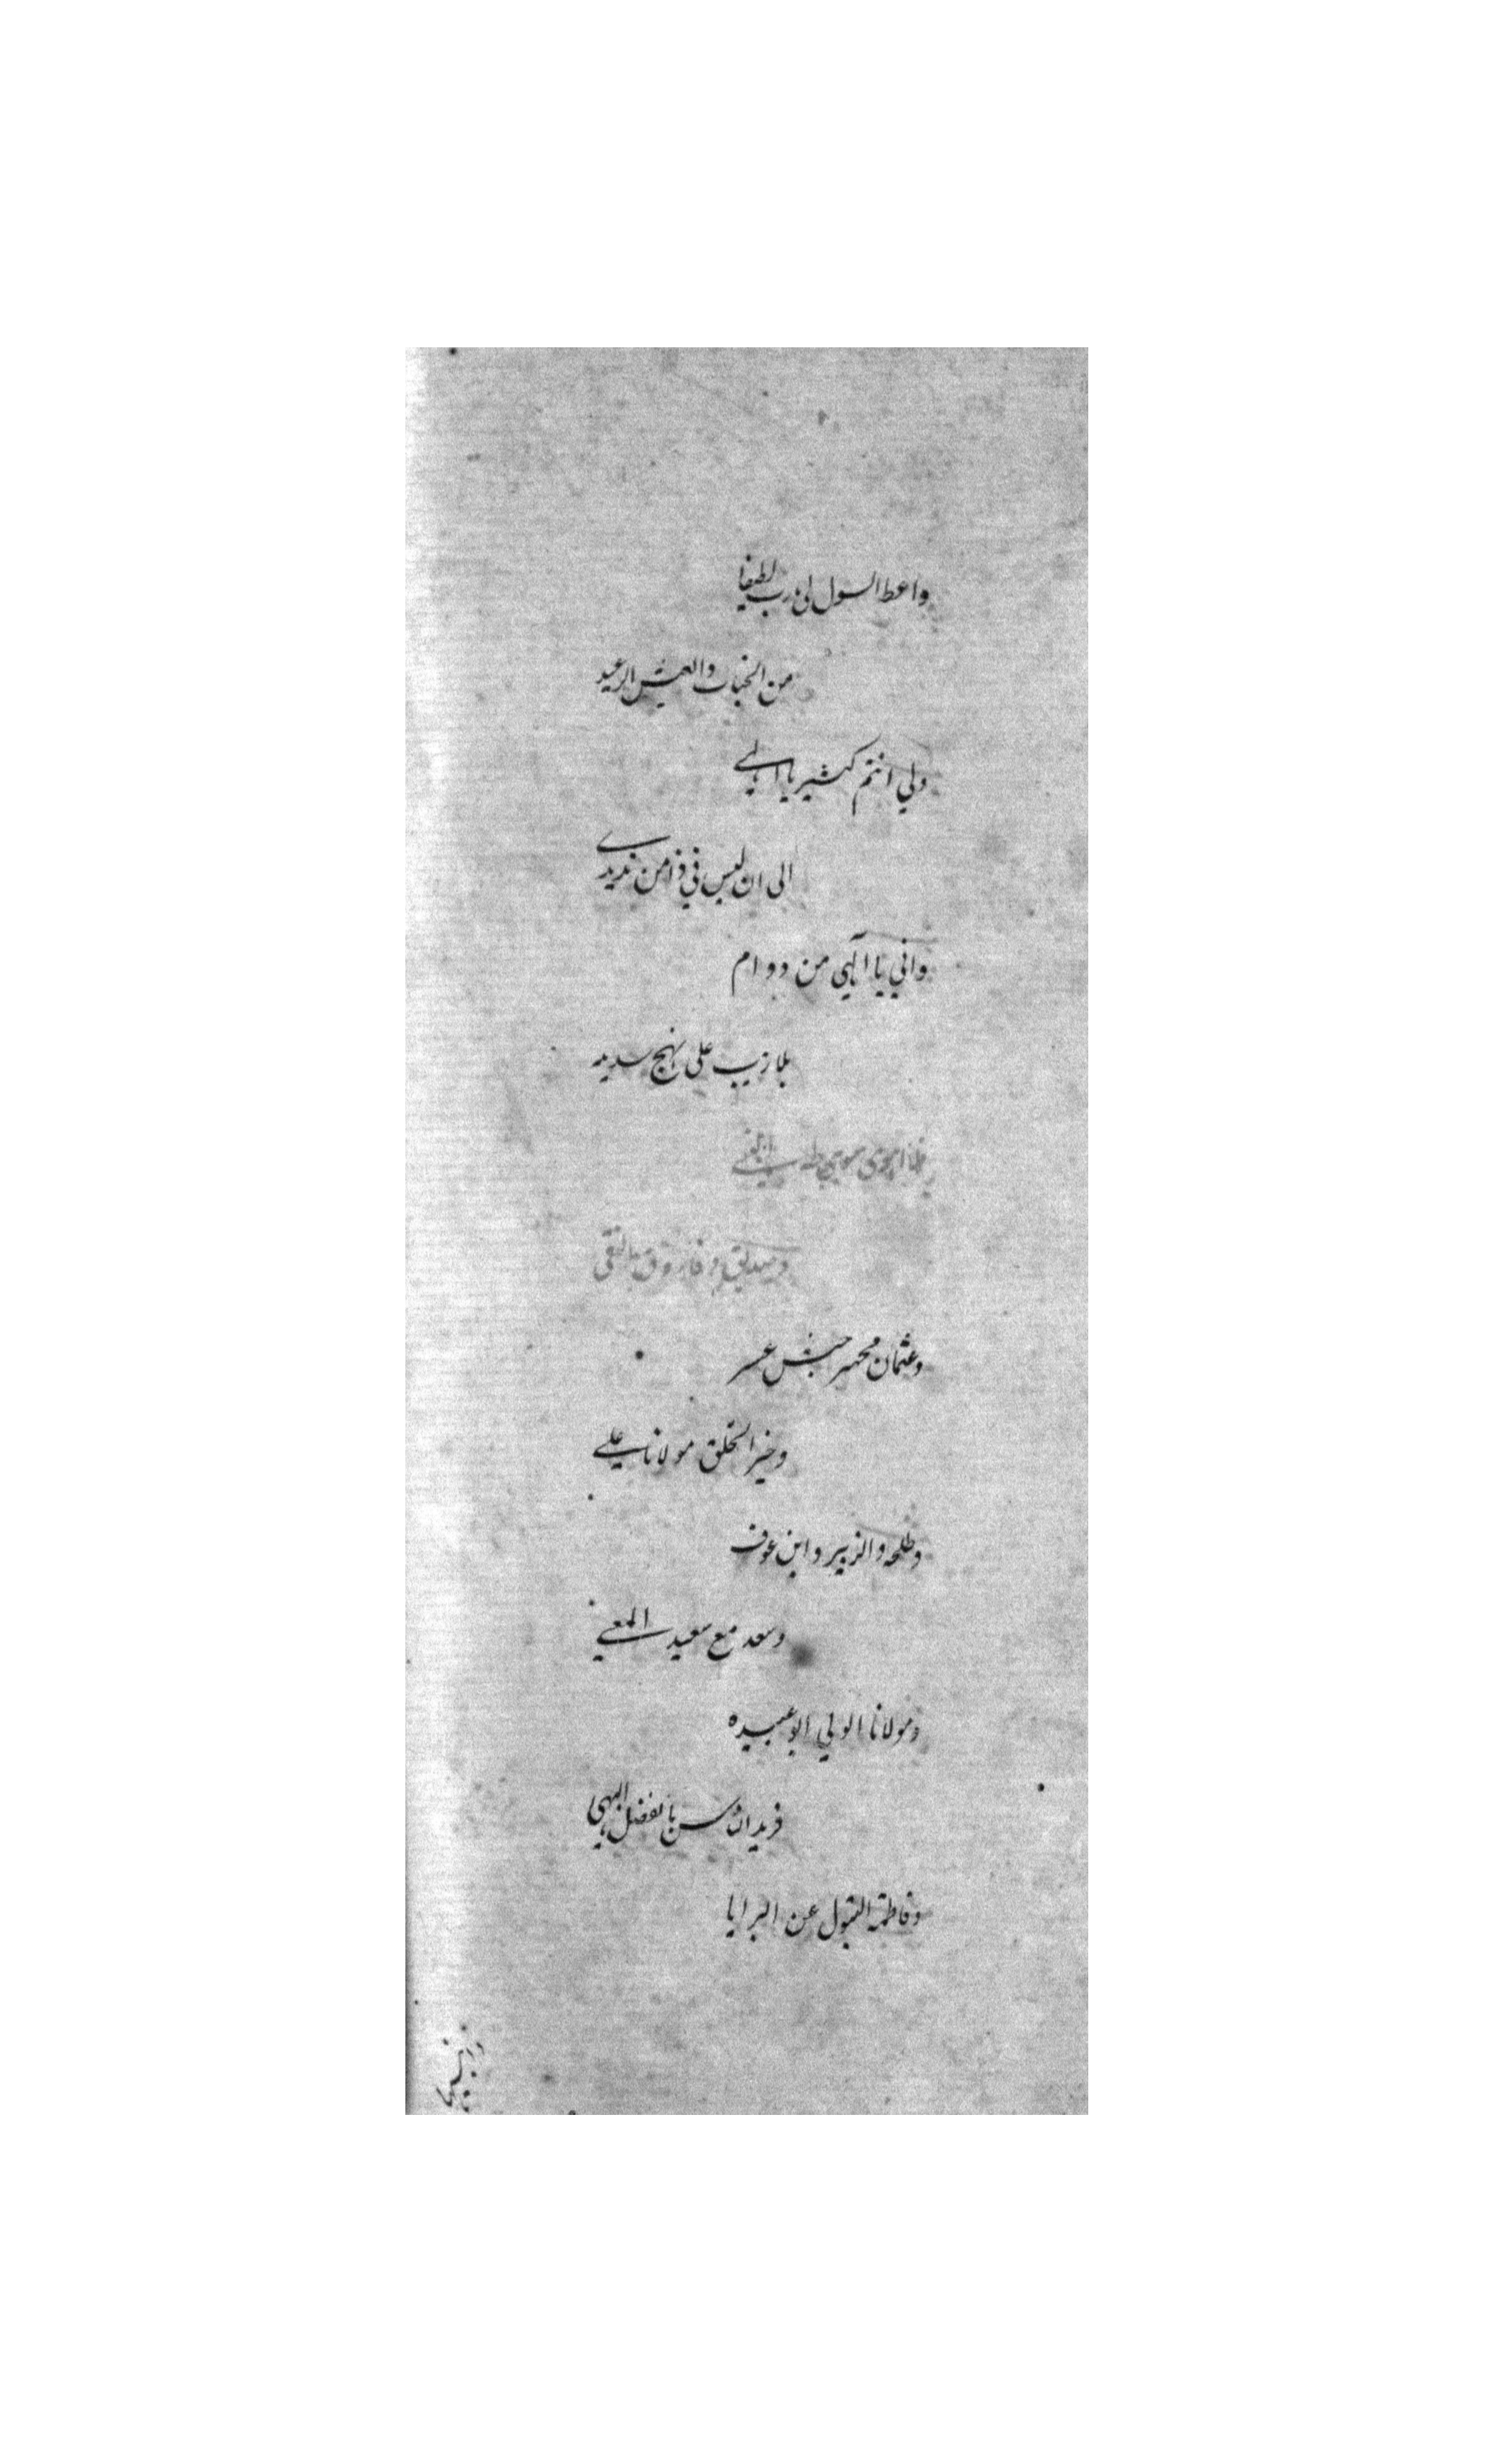 واعط السول لي رب لطيفا
من الخيات والعيش الرغيد
ولي انتم كثير يا الهي
الى ان ليس في ذا من نديدي
واني يا آلهي من دوام
بلا ريب على نهج سديد
سوى طه
وصديق وفاروق التقي
وعثمان مجهز جيش عسر
وخير الخلق مولانا علي
وطلحه والزبير وابن عوف
وسعد مع سعيد المعي
ومولانا الولي ابو عبيده
بالفضل البهي
وفاطمة البتول عن البرايا